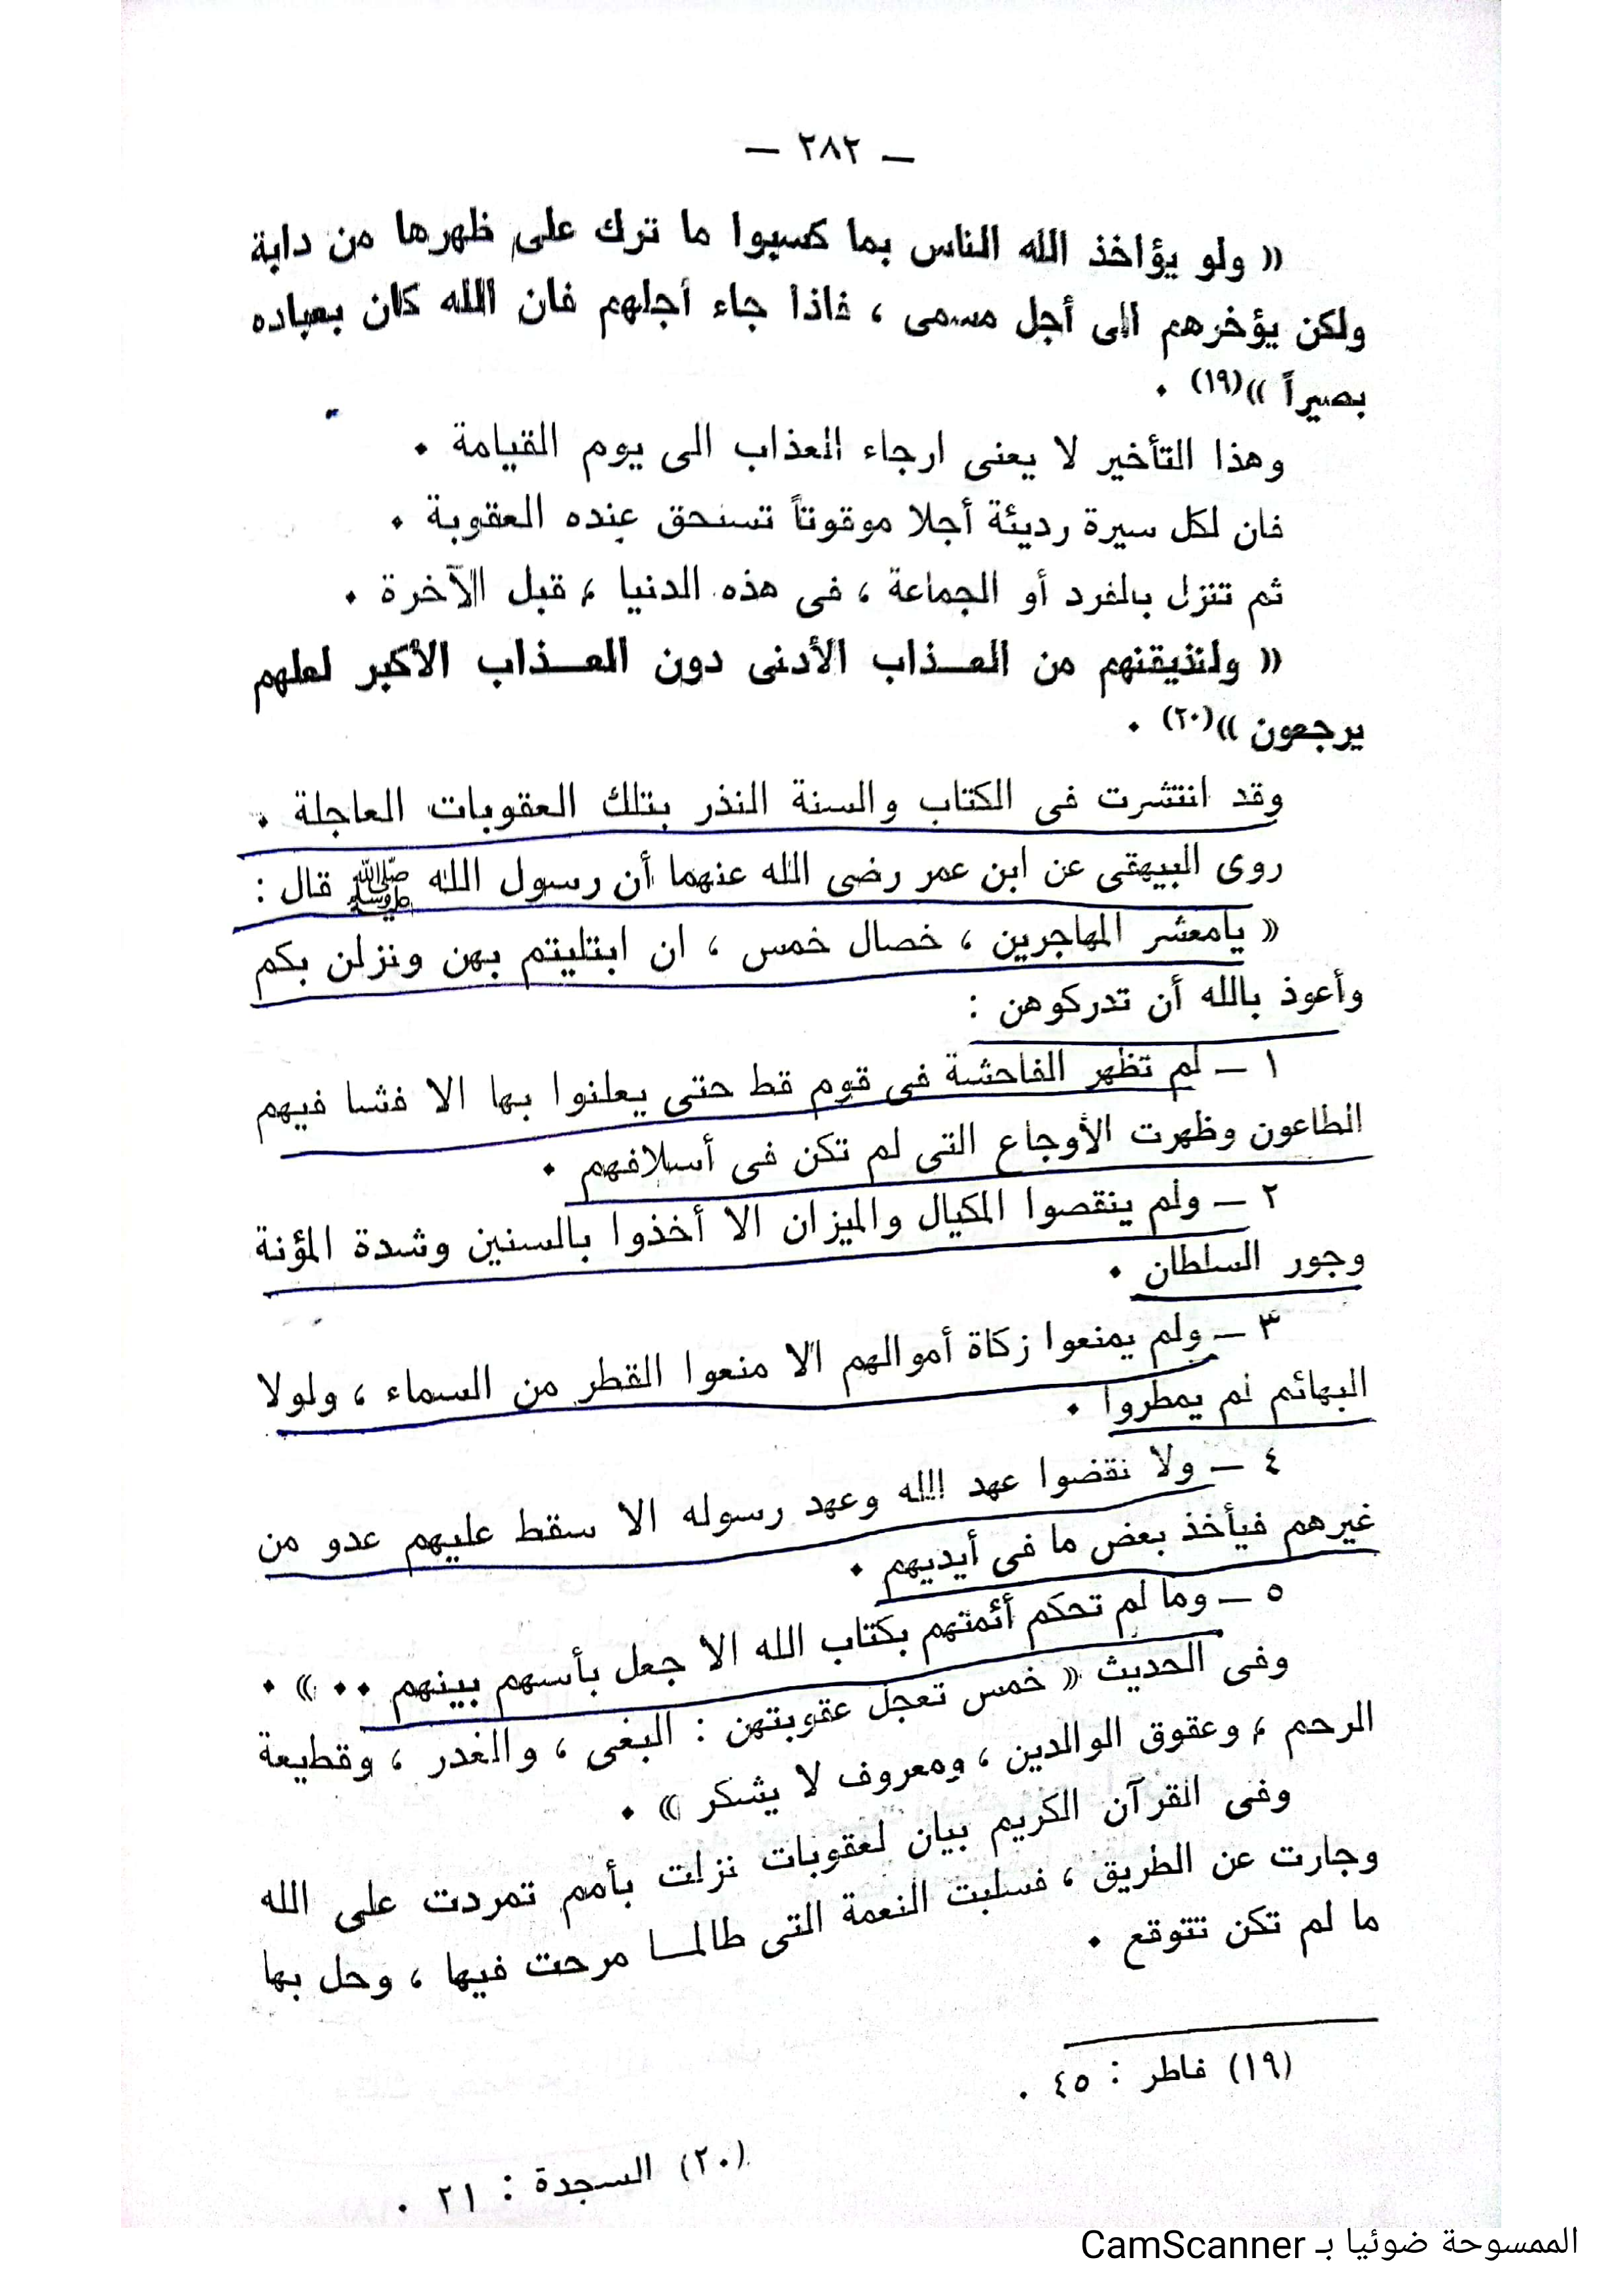 — ٢٨٢ —
« ولو يؤاخذ الله الناس بما كسبوا ما ترك على ظهرها من دابة
ولكن يؤخرهم الى أجل مسمى ، فاذا جاء أجلهم فان الله كان بعباده
بصيراً »(١٩) .
وهذا التأخير لا يعنى ارجاء العذاب الى يوم القيامة .
فان لكل سيرة رديئة أجلا موقوتاً تستحق عنده العقوبة .
ثم تنزل بالفرد أو الجماعة ، فى هذه الدنيا ، قبل الآخرة .
« ولنذيقنهم من العـــذاب الأدنى دون العـــذاب الأكبر لعلهم
يرجعون »(٢٠) .
وقد انتشرت فى الكتاب والسنة النذر بتلك العقوبات العاجلة .
روى البيهقى عن ابن عمر رضى الله عنهما أن رسول الله ﷺ قال :
« يامعشر المهاجرين ، خصال خمس ، ان ابتليتم بهن ونزلن بكم
وأعوذ بالله أن تدركوهن :
١ — لم تظهر الفاحشة فى قوم قط حتى يعلنوا بها الا فشا فيهم
الطاعون وظهرت الأوجاع التى لم تكن فى أسلافهم .
٢ — ولم ينقصوا المكيال والميزان الا أخذوا بالسنين وشدة المؤنة
وجور السلطان .
٣ — ولم يمنعوا زكاة أموالهم الا منعوا القطر من السماء ، ولولا
البهائم لم يمطروا .
٤ — ولا نقضوا عهد الله وعهد رسوله الا سقط عليهم عدو من
غيرهم فيأخذ بعض ما فى أيديهم .
٥ — وما لم تحكم أئمتهم بكتاب الله الا جعل بأسهم بينهم .. » .
وفى الحديث « خمس تعجل عقوبتهن : البغى ، والغدر ، وقطيعة
الرحم ، وعقوق الوالدين ، ومعروف لا يشكر » .
وفى القرآن الكريم بيان لعقوبات نزلت بأمم تمردت على الله
وجارت عن الطريق ، فسلبت النعمة التى طالمــا مرحت فيها ، وحل بها
ما لم تكن تتوقع .
(١٩) فاطر : ٤٥ .
(٢٠) السجدة : ٢١ .
الممسوحة ضوئيا بـ CamScanner